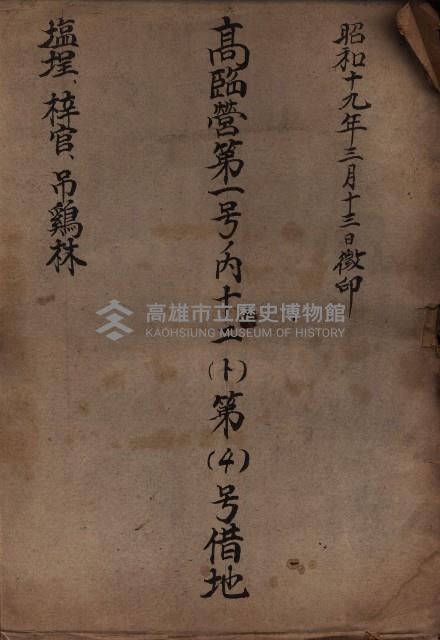 昭和十九年三月十三日徴印
高臨營第一号ノ内十一(ト)第(4)号借地
塩埕、梓官、吊鷄林
高雄市立歷史博物館
KAOHSIUNG MUSEUM OF HISTORY